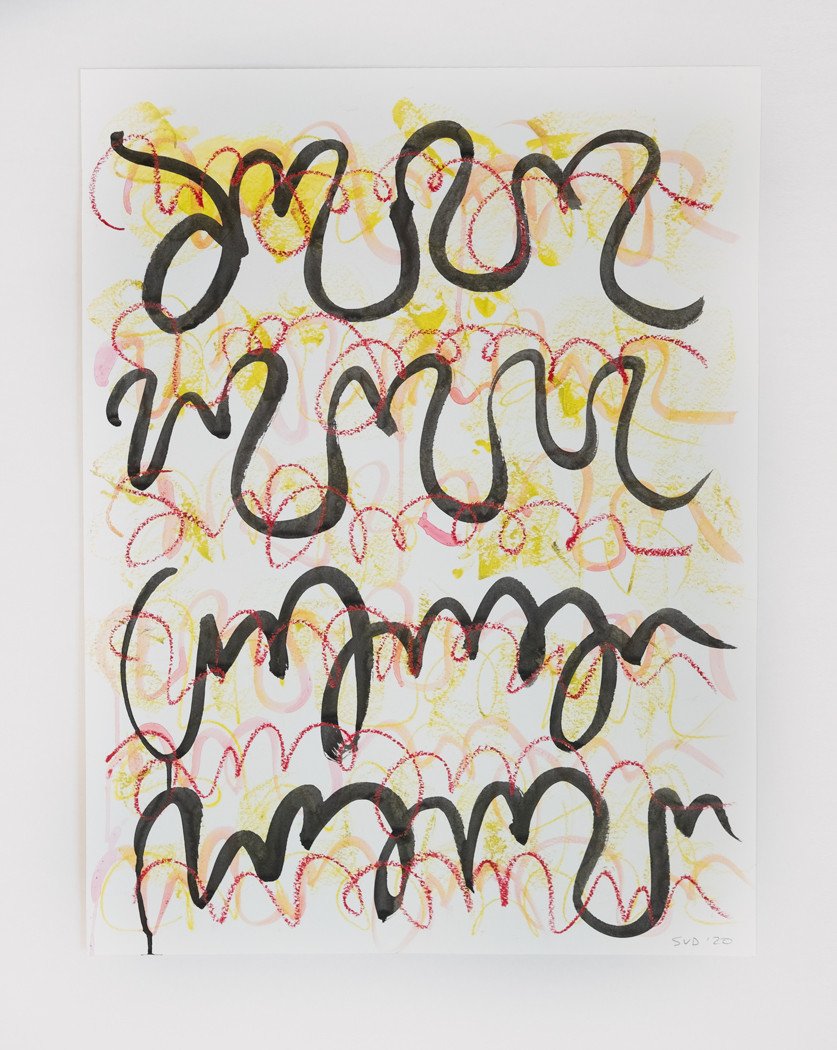 SVD '20